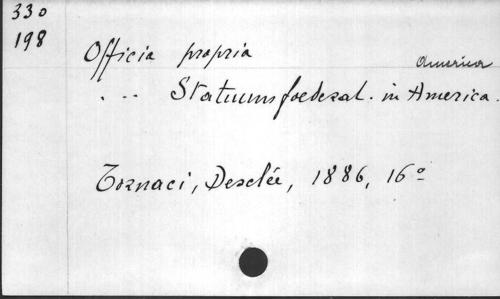 330
198
Officia propria
America
. .. Statuum foederat. in America.
Tornaci, Desclée, 1886, 16º